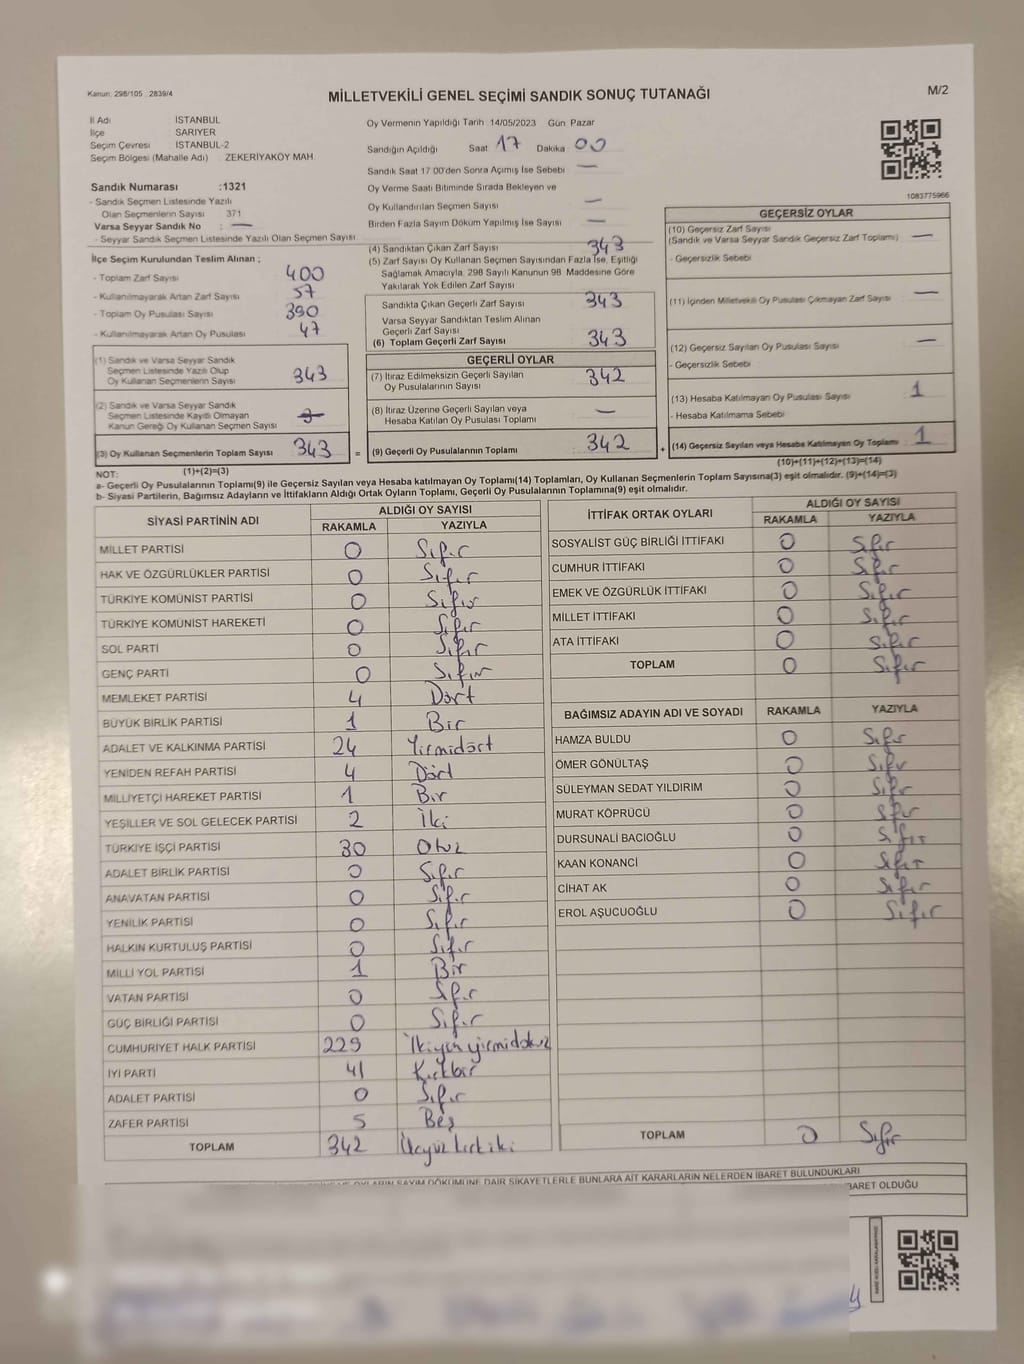 Kanun: 298/105 2839/4
MİLLETVEKİLİ GENEL SEÇİMİ SANDIK SONUÇ TUTANAĞI
M/2
İl Adı İSTANBUL
İlçe SARIYER
Seçim Çevresi İSTANBUL-2
Seçim Bölgesi (Mahalle Adı) ZEKERİYAKÖY MAH.
Sandık Numarası :1321
- Sandık Seçmen Listesinde Yazılı
Olan Seçmenlerin Sayısı 371
Varsa Seyyar Sandık No : —
- Seyyar Sandık Seçmen Listesinde Yazılı Olan Seçmen Sayısı
İlçe Seçim Kurulundan Teslim Alınan ;
- Toplam Zarf Sayısı 400
- Kullanılmayarak Artan Zarf Sayısı 57
- Toplam Oy Pusulası Sayısı 390
- Kullanılmayarak Artan Oy Pusulası 47
(1) Sandık ve Varsa Seyyar Sandık
Seçmen Listesinde Yazılı Olup
Oy Kullanan Seçmenlerin Sayısı 343
(2) Sandık ve Varsa Seyyar Sandık
Seçmen Listesinde Kayıtlı Olmayan
Kanun Gereği Oy Kullanan Seçmen Sayısı
(3) Oy Kullanan Seçmenlerin Toplam Sayısı 343 =
(1)+(2)=(3)
Oy Vermenin Yapıldığı Tarih 14/05/2023 Gün Pazar
Sandığın Açıldığı Saat 17 Dakika 00
Sandık Saat 17:00'den Sonra Açımış İse Sebebi —
Oy Verme Saati Bitiminde Sırada Bekleyen ve
Oy Kullandırılan Seçmen Sayısı —
Birden Fazla Sayım Döküm Yapılmış İse Sayısı —
(4) Sandıktan Çıkan Zarf Sayısı 343
(5) Zarf Sayısı Oy Kullanan Seçmen Sayısından Fazla İse, Eşitliği
Sağlamak Amacıyla, 298 Sayılı Kanunun 98. Maddesine Göre
Yakılarak Yok Edilen Zarf Sayısı
Sandıkta Çıkan Geçerli Zarf Sayısı 343
Varsa Seyyar Sandıktan Teslim Alınan
Geçerli Zarf Sayısı
(6) Toplam Geçerli Zarf Sayısı 343
GEÇERLİ OYLAR
(7) İtiraz Edilmeksizin Geçerli Sayılan
Oy Pusulalarının Sayısı 342
(8) İtiraz Üzerine Geçerli Sayılan veya
Hesaba Katılan Oy Pusulası Toplamı —
(9) Geçerli Oy Pusulalarının Toplamı 342 +
1083775966
GEÇERSİZ OYLAR
(10) Geçersiz Zarf Sayısı
(Sandık ve Varsa Seyyar Sandık Geçersiz Zarf Toplamı) —
- Geçersizlik Sebebi
(11) İçinden Milletvekili Oy Pusulası Çıkmayan Zarf Sayısı —
(12) Geçersiz Sayılan Oy Pusulası Sayısı —
- Geçersizlik Sebebi
(13) Hesaba Katılmayan Oy Pusulası Sayısı 1
- Hesaba Katılmama Sebebi
(14) Geçersiz Sayılan veya Hesaba Katılmayan Oy Toplamı 1
(10)+(11)+(12)+(13)=(14)
NOT:
a- Geçerli Oy Pusulalarının Toplamı(9) ile Geçersiz Sayılan veya Hesaba katılmayan Oy Toplamı(14) Toplamları, Oy Kullanan Seçmenlerin Toplam Sayısına(3) eşit olmalıdır. (9)+(14)=(3)
b- Siyasi Partilerin, Bağımsız Adayların ve İttifakların Aldığı Ortak Oyların Toplamı, Geçerli Oy Pusulalarının Toplamına(9) eşit olmalıdır.
SİYASİ PARTİNİN ADI ALDIĞI OY SAYISI
RAKAMLA YAZIYLA
MİLLET PARTİSİ 0 Sıfır
HAK VE ÖZGÜRLÜKLER PARTİSİ 0 Sıfır
TÜRKİYE KOMÜNİST PARTİSİ 0 Sıfır
TÜRKİYE KOMÜNİST HAREKETİ 0 Sıfır
SOL PARTİ 0 Sıfır
GENÇ PARTİ 0 Sıfır
MEMLEKET PARTİSİ 4 Dört
BÜYÜK BİRLİK PARTİSİ 1 Bir
ADALET VE KALKINMA PARTİSİ 24 Yirmidört
YENİDEN REFAH PARTİSİ 4 Dört
MİLLİYETÇİ HAREKET PARTİSİ 1 Bir
YEŞİLLER VE SOL GELECEK PARTİSİ 2 İki
TÜRKİYE İŞÇİ PARTİSİ 30 Otuz
ADALET BİRLİK PARTİSİ 0 Sıfır
ANAVATAN PARTİSİ 0 Sıfır
YENİLİK PARTİSİ 0 Sıfır
HALKIN KURTULUŞ PARTİSİ 0 Sıfır
MİLLİ YOL PARTİSİ 1 Bir
VATAN PARTİSİ 0 Sıfır
GÜÇ BİRLİĞİ PARTİSİ 0 Sıfır
CUMHURİYET HALK PARTİSİ 229 İkiyüzyirmidokuz
İYİ PARTİ 41 Kırkbir
ADALET PARTİSİ 0 Sıfır
ZAFER PARTİSİ 5 Beş
TOPLAM 342 Üçyüzkırkiki
İTTİFAK ORTAK OYLARI ALDIĞI OY SAYISI
RAKAMLA YAZIYLA
SOSYALİST GÜÇ BİRLİĞİ İTTİFAKI 0 Sıfır
CUMHUR İTTİFAKI 0 Sıfır
EMEK VE ÖZGÜRLÜK İTTİFAKI 0 Sıfır
MİLLET İTTİFAKI 0 Sıfır
ATA İTTİFAKI 0 Sıfır
TOPLAM 0 Sıfır
BAĞIMSIZ ADAYIN ADI VE SOYADI RAKAMLA YAZIYLA
HAMZA BULDU 0 Sıfır
ÖMER GÖNÜLTAŞ 0 Sıfır
SÜLEYMAN SEDAT YILDIRIM 0 Sıfır
MURAT KÖPRÜCÜ 0 Sıfır
DURSUNALİ BACIOĞLU 0 Sıfır
KAAN KONANCİ 0 Sıfır
CİHAT AK 0 Sıfır
EROL AŞUCUOĞLU 0 Sıfır
TOPLAM 0 Sıfır
OYLARIN SAYIM DÖKÜMÜNE DAİR ŞİKAYETLERLE BUNLARA AİT KARARLARIN NELERDEN İBARET BULUNDUKLARI
BARET OLDUĞU